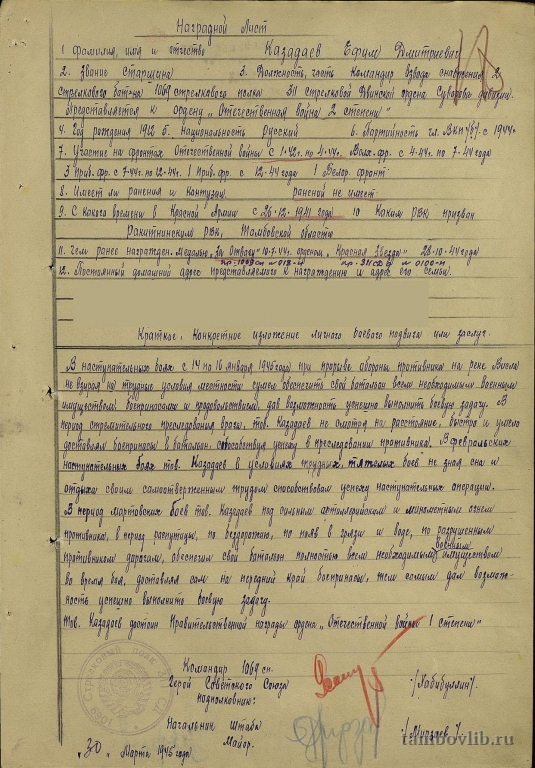 Наградной Лист
1 Фамилия, имя и отчество Казадаев Ефим Дмитриевич
2. Звание Старшина 3. Должность, часть Командир взвода снабжения 2
стрелкового батона 1069 стрелкового полка 311 стрелковой Двинской ордена Суворова дивизии
Представляется к ордену „Отечественная война 2 степени"
4. Год рождения 1912 5. Национальность Русский 6. Партийность чл. ВКП/б/ с 1944г.
7. Участие на фронтах Отечественной войны с 1-42г. по 4-44г. Волх. фр. с 4-44г по 7-44года
3 Приб. фр. с 7-44г по 12-44г. 1 Приб. фр. с 12-44 года 1 Белор. фронт
8. Имеет ли ранения и контузии ранений не имеет
9. С какого времени в Красной Армии с 26-12-1941 года 10 Каким РВК, призван
Ракитинским РВК, Тамбовской области
11. Чем ранее награжден. Медалью „За Отвагу" 10-7-44г. орденом „Красная Звезда" 28-10-44года
пр. 1069сп №013-н пр. 311сд № 0100-н
12. Постоянный домашний адрес представляемого к награждению и адрес его семьи.
Краткое, конкретное изложение личного боевого подвига или заслуг.
В наступательных боях с 14 по 16 января 1945года при прорыве обороны противника на реке Висла
не взирая на трудные условия местности сумел обеспечить свой батальон всем необходимым военным
имуществом боеприпасами и продовольствием, дав возможность успешно выполнить боевую задачу. В
период стремительного преследования врага, тов. Казадаев не смотря на расстояние, быстро и умело
доставлял боеприпасы в батальон способствуя успеху в преследовании противника. В февральских
наступательных боях тов. Казадаев в условиях трудных, тяжелых боев не зная сна и
отдыха своим самоотверженным трудом способствовал успеху наступательных операции.
В период мартовских боев тов. Казадаев под сильным артиллерийским и минометным огнем
противника, в период распутицы, по бездорожью, по пояс в грязи и воде, по разрушенным
противником дорогам, обеспечил свой батальон полностью всем необходимым военным имуществом
во время боя, доставлял сам на передний край боеприпасы, тем самым дал возмож-
ность успешно выполнить боевую задачу.
Тов. Казадаев достоин Правительственной награды ордена „Отечественной войны 1 степени"
Командир 1069 сп.
Герой Советского Союза
подполковник: /Хабибуллин/.
Начальник Штаба
Майор. /Мирзаев/.
„30" Марта 1945 года
tambovlib.ru